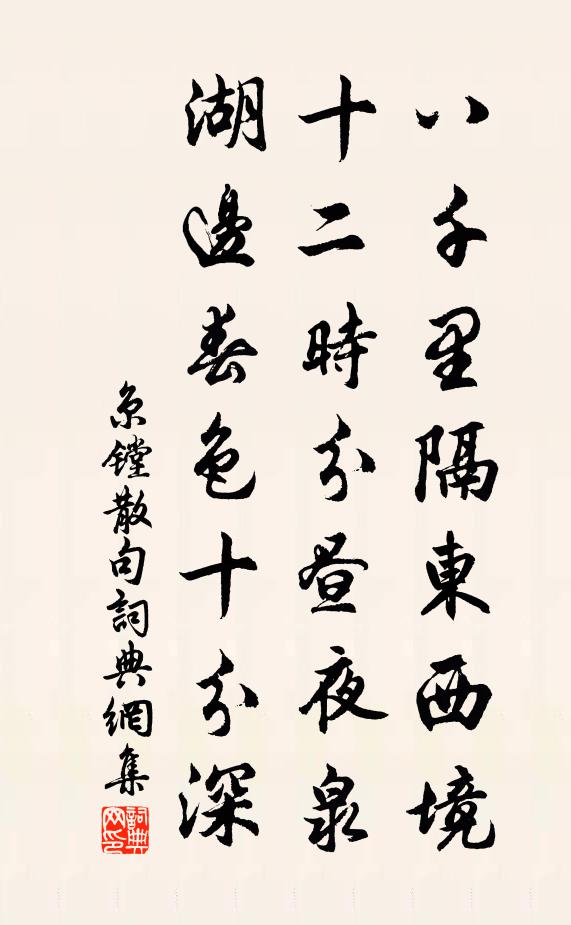 八千里隔東西境
十二時分晝夜泉
湖邊春色十分深
京鏜散句詞典網集
詞典網印